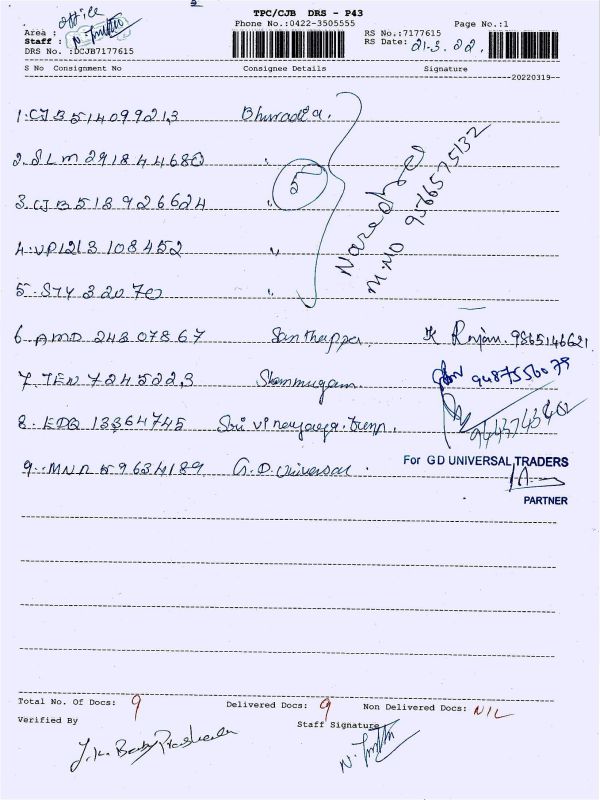 TPC/CJB DRS - P43
Phone No.:0422-3505555
Page No.:1
office
Area :
Staff :
DRS No. :DCJB7177615
RS No.:7177615
RS Date: 21-3.22.
S No Consignment No Consignee Details Signature
20220319
1. CJB 514099213
2. SLM 291844680 "
3. CJB 518926624 "
5
4. VPI 213108452 "
M.NO 9566575132
5. STY 32070 "
6. AMD 24807867 Santhappa. K Rajan. 9865146621
7. TEN 7245223 Shanmugam 9487556079
8. EDQ 13364745 Sri Vinayaga
9. MNR 59634189 G.D. Universal.
For GD UNIVERSAL TRADERS
PARTNER
Total No. Of Docs: 9 Delivered Docs: 9 Non Delivered Docs: NIL
Verified By Staff Signature